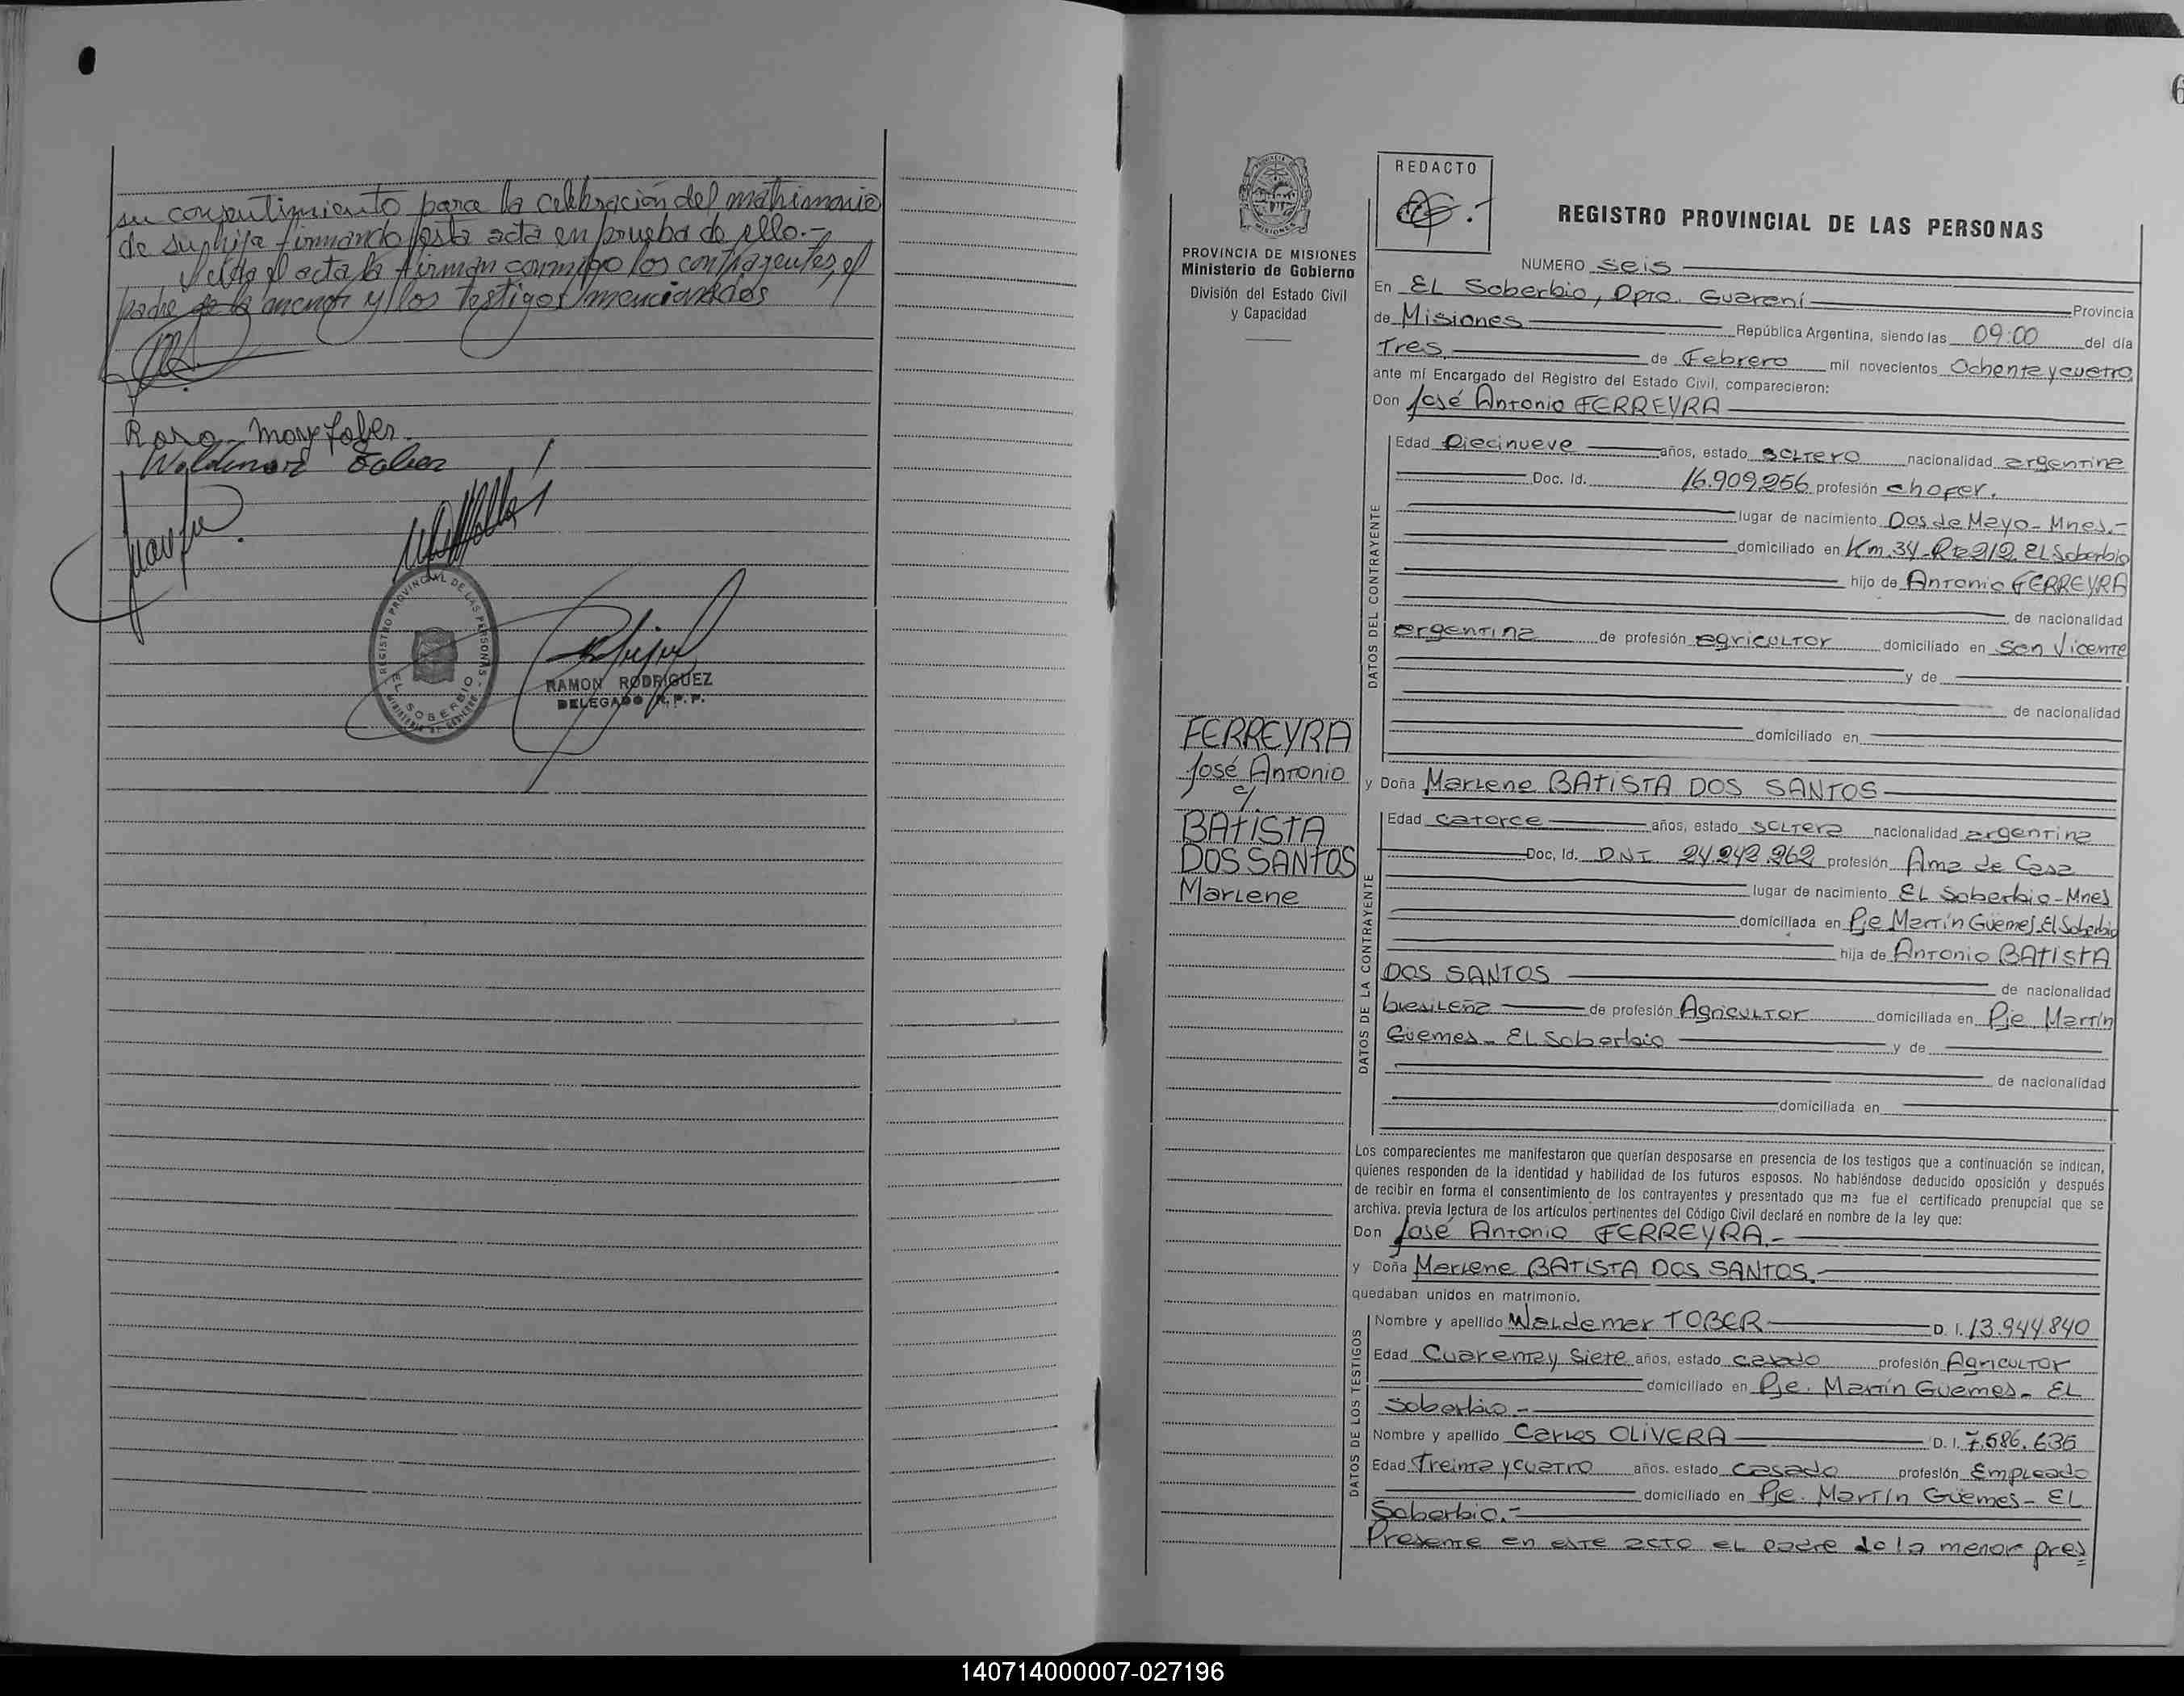 su consentimiento para la celebración del matrimonio
de su hija firmando esta acta en prueba de ello.-
Leída el acta la firman conmigo los contrayentes, el
padre de la menor y los testigos mencionados
REGISTRO PROVINCIAL DE LAS PERSONAS
EL SOBERBIO
RAMON RODRIGUEZ
DELEGADO R.P.P.
6
PROVINCIA DE MISIONES
Ministerio de Gobierno
División del Estado Civil
y Capacidad
REDACTO
REGISTRO PROVINCIAL DE LAS PERSONAS
NUMERO Seis
En EL Soberbio, Dpto. Guaraní Provincia
de Misiones República Argentina, siendo las 09:00 del día
Tres de Febrero mil novecientos Ochenta y cuatro
ante mí Encargado del Registro del Estado Civil, comparecieron:
Don José Antonio FERREYRA
DATOS DEL CONTRAYENTE
Edad Diecinueve años, estado soltero nacionalidad argentina
Doc. Id. 16.909.256 profesión chofer.
lugar de nacimiento Dos de Mayo - Mnes.-
domiciliado en Km. 34 - Rta 212 EL Soberbio
hijo de Antonio FERREYRA
de nacionalidad
argentina de profesión agricultor domiciliado en San Vicente
y de
de nacionalidad
domiciliado en
FERREYRA
José Antonio
c/.
BATISTA
DOS SANTOS
Marlene
y Doña Marlene BATISTA DOS SANTOS
DATOS DE LA CONTRAYENTE
Edad catorce años, estado soltera nacionalidad argentina
Doc. Id. DNI 24.242.262 profesión Ama de Casa
lugar de nacimiento EL Soberbio - Mnes
domiciliada en Pje Martín Güemes. El Soberbio
hija de Antonio BATISTA
DOS SANTOS de nacionalidad
brasileña de profesión Agricultor domiciliada en Pje. Martín
Güemes - EL Soberbio y de
de nacionalidad
domiciliada en
Los comparecientes me manifestaron que querían desposarse en presencia de los testigos que a continuación se indican,
quienes responden de la identidad y habilidad de los futuros esposos. No habiéndose deducido oposición y después
de recibir en forma el consentimiento de los contrayentes y presentado que me fue el certificado prenupcial que se
archiva, previa lectura de los artículos pertinentes del Código Civil declaré en nombre de la ley que:
Don José Antonio FERREYRA.-
y Doña Marlene BATISTA DOS SANTOS.
quedaban unidos en matrimonio.
DATOS DE LOS TESTIGOS
Nombre y apellido Waldemar TOBER D. I. 13.944.840
Edad Cuarenta y Siete años, estado casado profesión Agricultor
domiciliado en Pje. Martín Güemes - EL
Soberbio -
Nombre y apellido Carlos OLIVERA D. I. 7.686.636
Edad Treinta y cuatro años, estado casado profesión Empleado
domiciliado en Pje. Martín Güemes - EL
Soberbio.-
Presente en este acto el padre de la menor pres
140714000007-027196